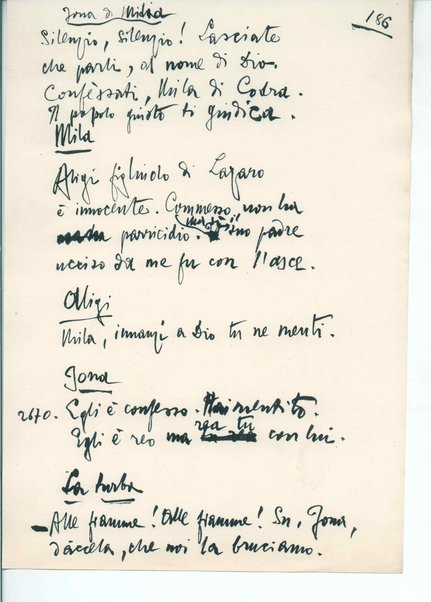 186
Jona di Midia
Silenzio, silenzio! Lasciate
che parli, al nome di Dio.
Confèssati, Mila di Codra.
Il popolo giusto ti giudica.
Mila
Aligi figliuolo di Lazaro
è innocente. Commesso non ha
parricidio. ma sì il suo padre
ucciso da me fu con l'asce.
Aligi
Mila, innanzi a Dio tu ne menti.
Jona
2670. Egli è confesso. Hai mentito.
Egli è reo ma rea tu con lui.
La turba
– Alle fiamme! Alle fiamme! Su, Jona,
dàccela, che noi la bruciamo.